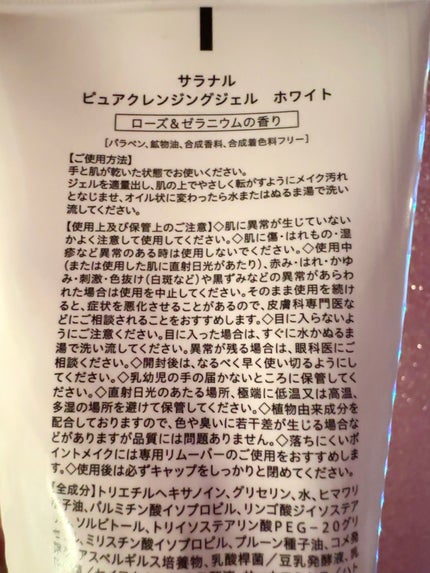 サラナル
ピュアクレンジングジェル　ホワイト
ローズ&ゼラニウムの香り
[パラベン、鉱物油、合成香料、合成着色料フリー]
【ご使用方法】
手と肌が乾いた状態でお使いください。
ジェルを適量出し、肌の上でやさしく転がすようにメイク汚れ
となじませ、オイル状に変わったら水またはぬるま湯で洗い
流してください。
【使用上及び保管上のご注意】◇肌に異常が生じていない
かよく注意して使用してください。◇肌に傷・はれもの・湿
疹など異常のある時は使用しないでください。◇使用中
(または使用した肌に直射日光があたり)、赤み・はれ・かゆ
み・刺激・色抜け(白斑など)や黒ずみなどの異常があらわ
れた場合は使用を中止してください。そのまま使用を続け
ると、症状を悪化させることがあるので、皮膚科専門医な
どにご相談されることをおすすめします。◇目に入らないよ
うにご注意ください。目に入った場合は、すぐに水かぬるま
湯で洗い流してください。異常が残る場合は、眼科医にご
相談ください。◇開封後は、なるべく早く使い切るようにし
てください。◇乳幼児の手の届かないところに保管してく
ださい。◇直射日光のあたる場所、極端に低温又は高温、
多湿の場所を避けて保管してください。◇植物由来成分を
配合しておりますので、色や臭いに若干差が生じる場合な
どがありますが品質には問題ありません。◇落ちにくいポ
イントメイクには専用リムーバーのご使用をおすすめしま
す。◇使用後は必ずキャップをしっかりと閉めてください。
【全成分】トリエチルヘキサノイン、グリセリン、水、ヒマワリ
種子油、パルミチン酸イソプロピル、リンゴ酸ジイソステア
ソルビトール、トリイソステアリン酸PEG-20グリ
ミリスチン酸イソプロピル、プルーン種子油、コメ発
アスペルギルス培養物、乳酸桿菌/豆乳発酵液、乳